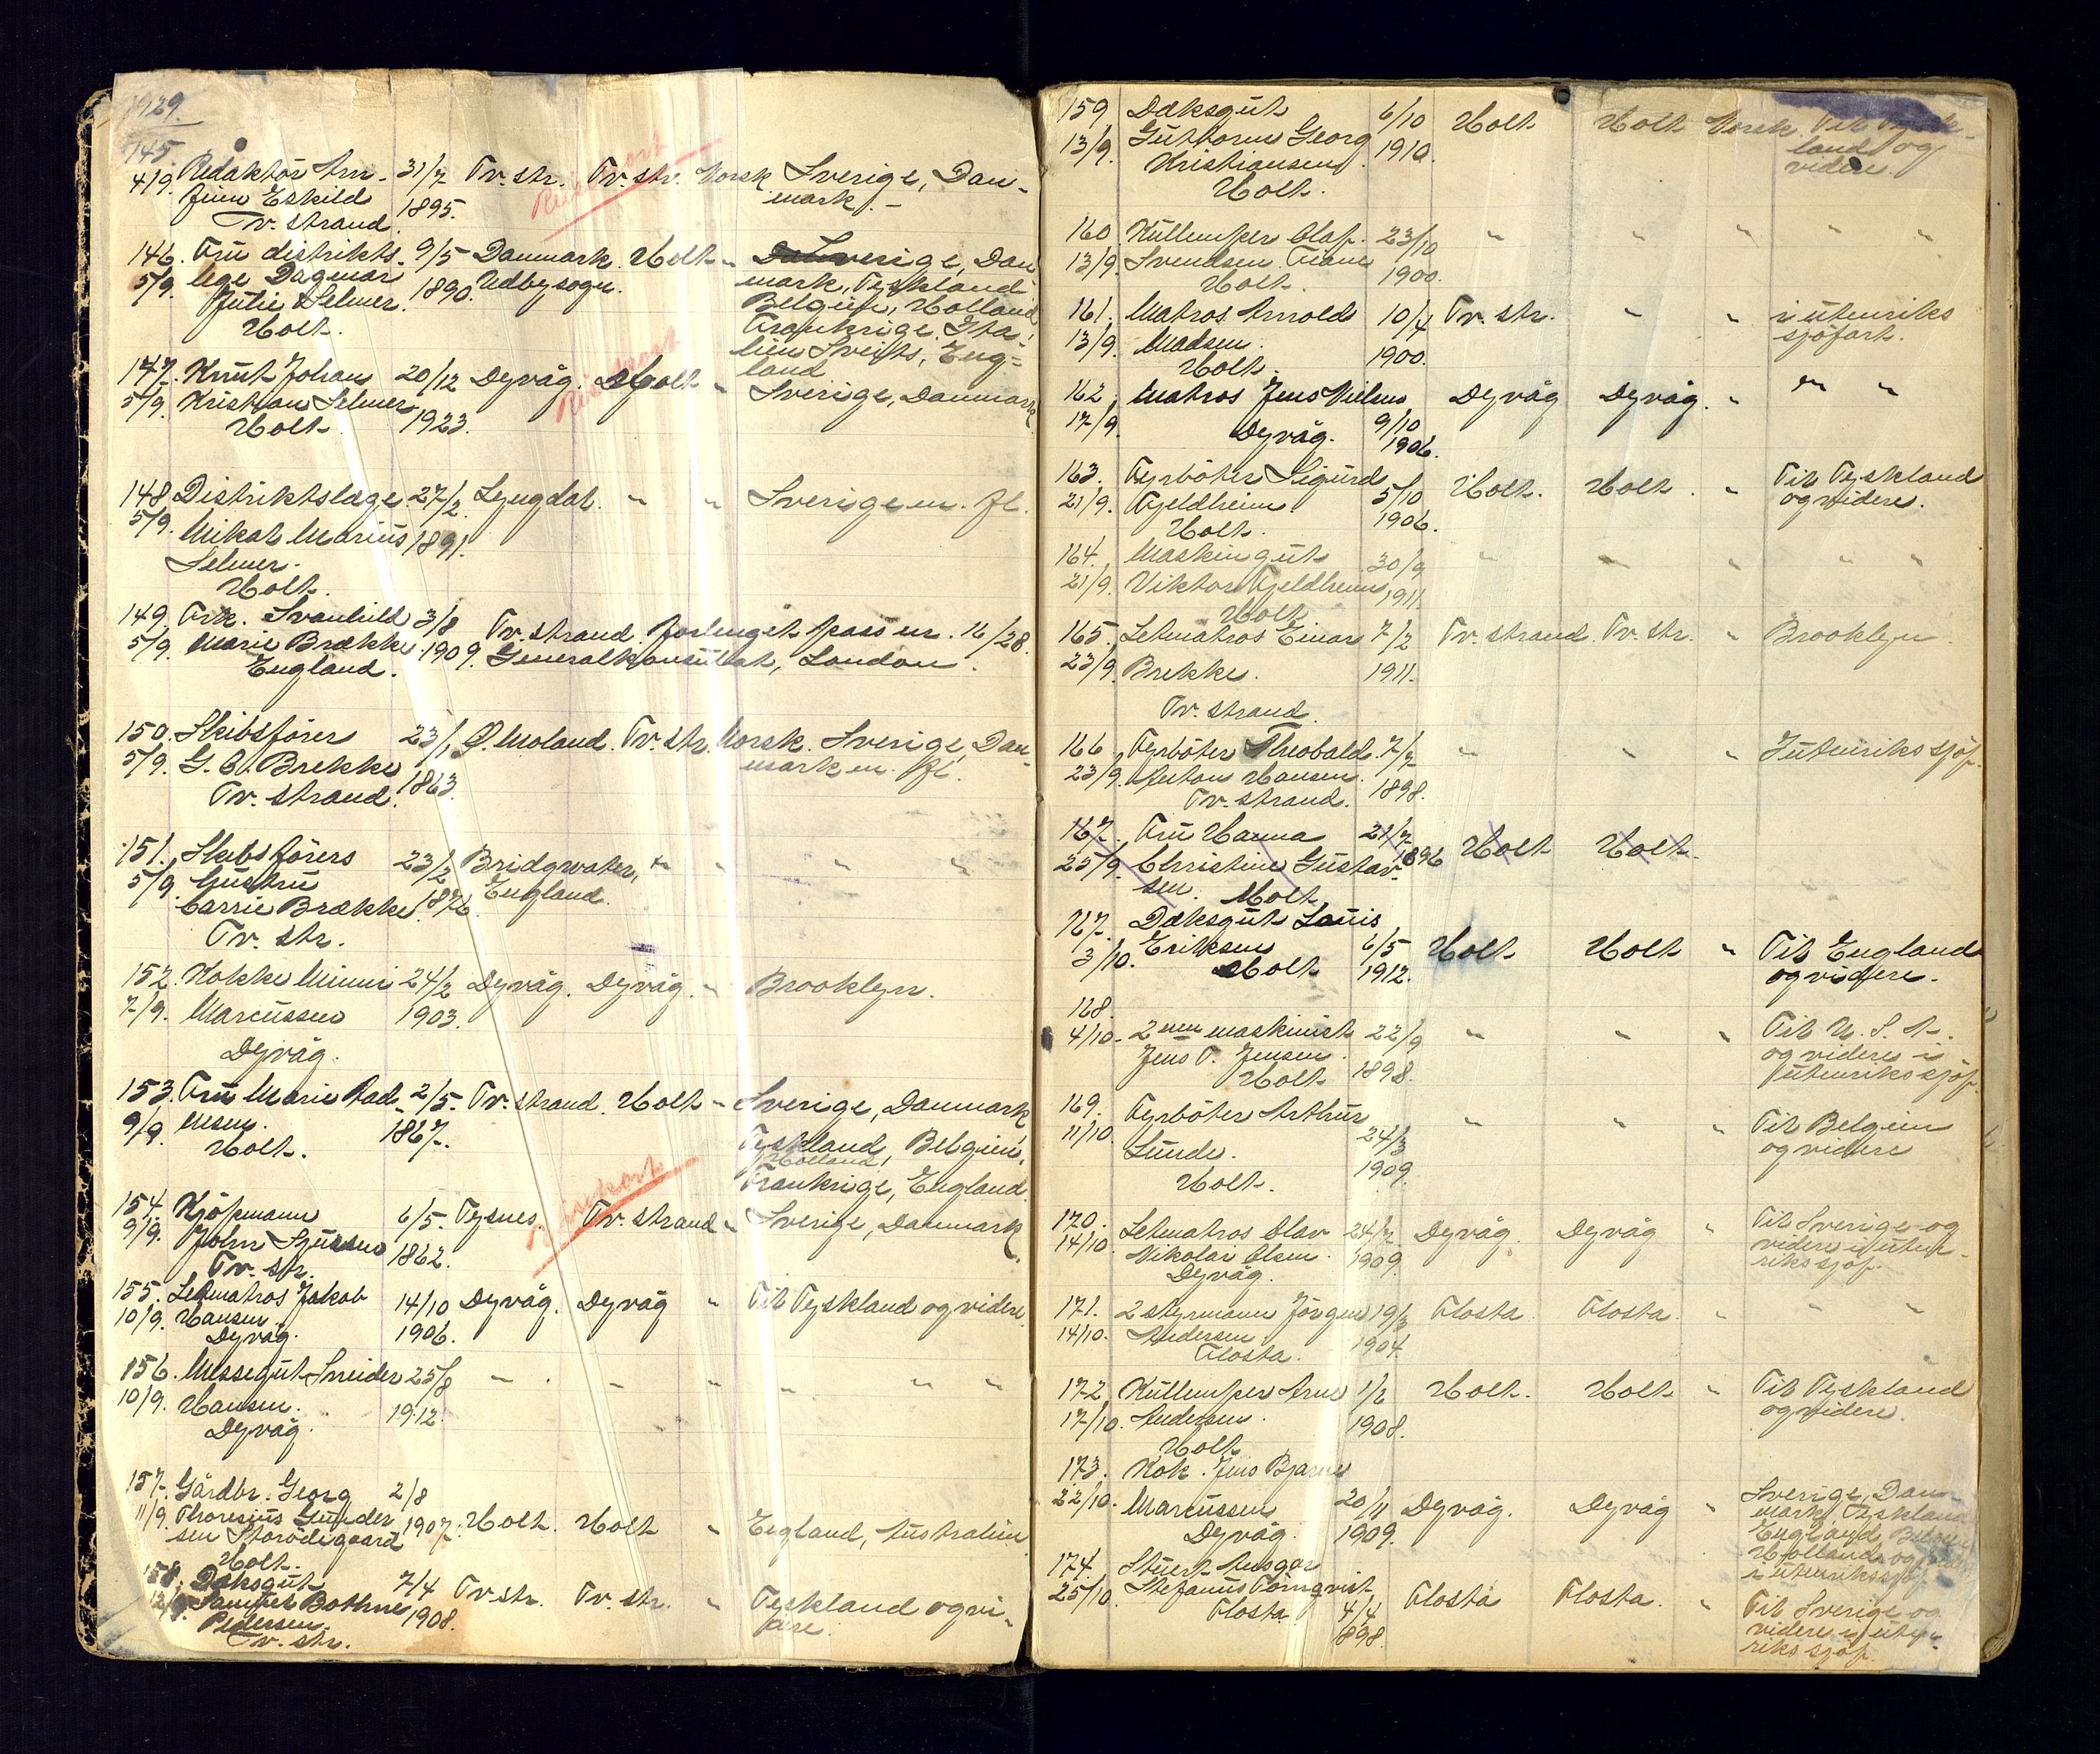 1929.
145 Redaktör Arn- 31/7 Tv. str. Tv. str. Norsk Sverige, Dan-
4/9. finn Eskild 1895. mark.
Tv. strand.
146. Fru distrikts- 9/5 Danmark. Holt " Sverige, Dan
5/9. lege Dagmar 1890. Udbysogn. mark, Tyskland
Julie Selmer. Belgien, Holland
Holt. Frankrige, Ita-
lien Sveits, Eng-
land
147. Knut Johan 20/12 Dyvåg. Holt " Sverige, Danmark
5/9. Kristian Selmer 1923.
Holt.
148 Distriktslæge 27/2 Lyngdal. " " Sverige m. fl.
5/9. Mikal Marius 1891.
Selmer.
Holt.
149. Frk. Svanhild 3/8 Tv. strand. Forlenget pass nr. 16/28.
5/9. Marie Brække 1909. Generalkonsulat, London.
England.
150. Skibsförer 23/1 Ø. Moland. Tv. str. Norsk. Sverige, Dan-
5/9. G. A. Brekke 1863. mark m. fl.
Tv. strand.
151. Skibsförers 23/2 Bridgwater, " " " "
5/9. hustru 1876. England.
Carrie Brække.
Tv. str.
152. Kokke Minni 24/2 Dyvåg. Dyvåg. " Brooklyn.
7/9. Marcussen 1903.
Dyvåg.
153. Fru Marie Aad- 2/5. Tv. strand. Holt " Sverige, Danmark,
9/9. nesen. 1867. Tyskland, Belgien,
Holt. Holland,
Frankrige, England.
154. Kjöpmann 6/5. Tysnes. Tv. strand " Sverige, Danmark.
9/9. John 1862.
Tv. str.
155. Letmatros Jakob 14/10 Dyvåg. Dyvåg " Til Tyskland og videre.
10/9. Hansen. 1906.
Dyvåg.
156. Messegut Sneider 25/8 " " " " " "
10/9. Hansen. 1912.
Dyvåg.
157. Gårdbr. Georg 2/8
11/9. Thoresius Gunder 1907. Holt. Holt " England, Australien
sen Storödegaard
Holt.
158. Dæksgut 7/4 Tv. str. Tv. str. " Tyskland og vi-
12/9. Samuel Bothne 1908. dere.
Pedersen.
Tv. str.
159. Dæksgut 6/10 Holt Holt Norsk Til Tysk-
13/9. Guttorm Georg 1910. land og
Kristiansen videre.
Holt.
160 Kullemper Olaf 23/10 " " " " "
13/9. Svendsen 1900.
Holt.
161. Matros Arnold 10/4 Tv. str. " " i utenriks
13/9. Madsen. 1900. sjöfart.
Holt.
162. Matros Jens Nielsen Dyvåg Dyvåg. " " "
17/9. Dyvåg. 9/10
1906.
163. Fyrböter Sigurd 5/10 Holt. Holt. " Til Tyskland
21/9. Fjeldheim. 1906. og videre.
Holt.
164. Maskingut 30/9 " " " " "
21/9. Viktor Fjeldheim 1911.
Holt
165. Letmatros Einar 7/2 Tv. strand. Tv. str. " Brooklyn.
23/9. Brekke. 1911.
Tv. strand.
166. Fyrböter Theobald 7/7 " " " I utenriks sjöf.
23/9. Anton Hansen. 1898.
Tv. strand.
167. Fru Hanna 21/7 Holt Holt.
25/9. Christine Gustav- 1896
sen. Holt
167. Dæksgut Louis
3/10. Eriksen 6/5 Holt Holt " Til England
Holt 1912. og videre.
168.
4/10. 2nen maskinist 22/9 " " " Til U. S. A.
Jens T. Jensen. og videre i
Holt 1898. utenriks sjöf.
169. Fyrböter Arthur " " " Til Belgien
11/10. Lunde. 24/3 og videre
Holt. 1909.
170. Letmatros Olav 24/7 Dyvåg. Dyvåg " Til Sverige og
14/10. Nikolai Olsen. 1909. videre i uten-
Dyvåg. riks sjöf.
171. 2 styrmann Jörgen 19/3 Flosta. Flosta. " " "
14/10. Andersen. 1904.
Flosta.
172. Kullemper Arne 1/2 Holt. Holt " Til Tyskland
17/10. Andersen. 1908. og videre.
Holt
173. Kok Jens Bjarne
22/10. Marcussen 20/11 Dyvåg. Dyvåg " Sverige, Dan-
Dyvåg. 1909. mark, Tyskland
England
Holland og
i utenrikssjöf.
174. Stuert Ansgar
25/10. Stefanus Törnqvist Flosta Flosta. " Til Sverige og
Flosta 4/4 videre i uten-
1898. riks sjöf.